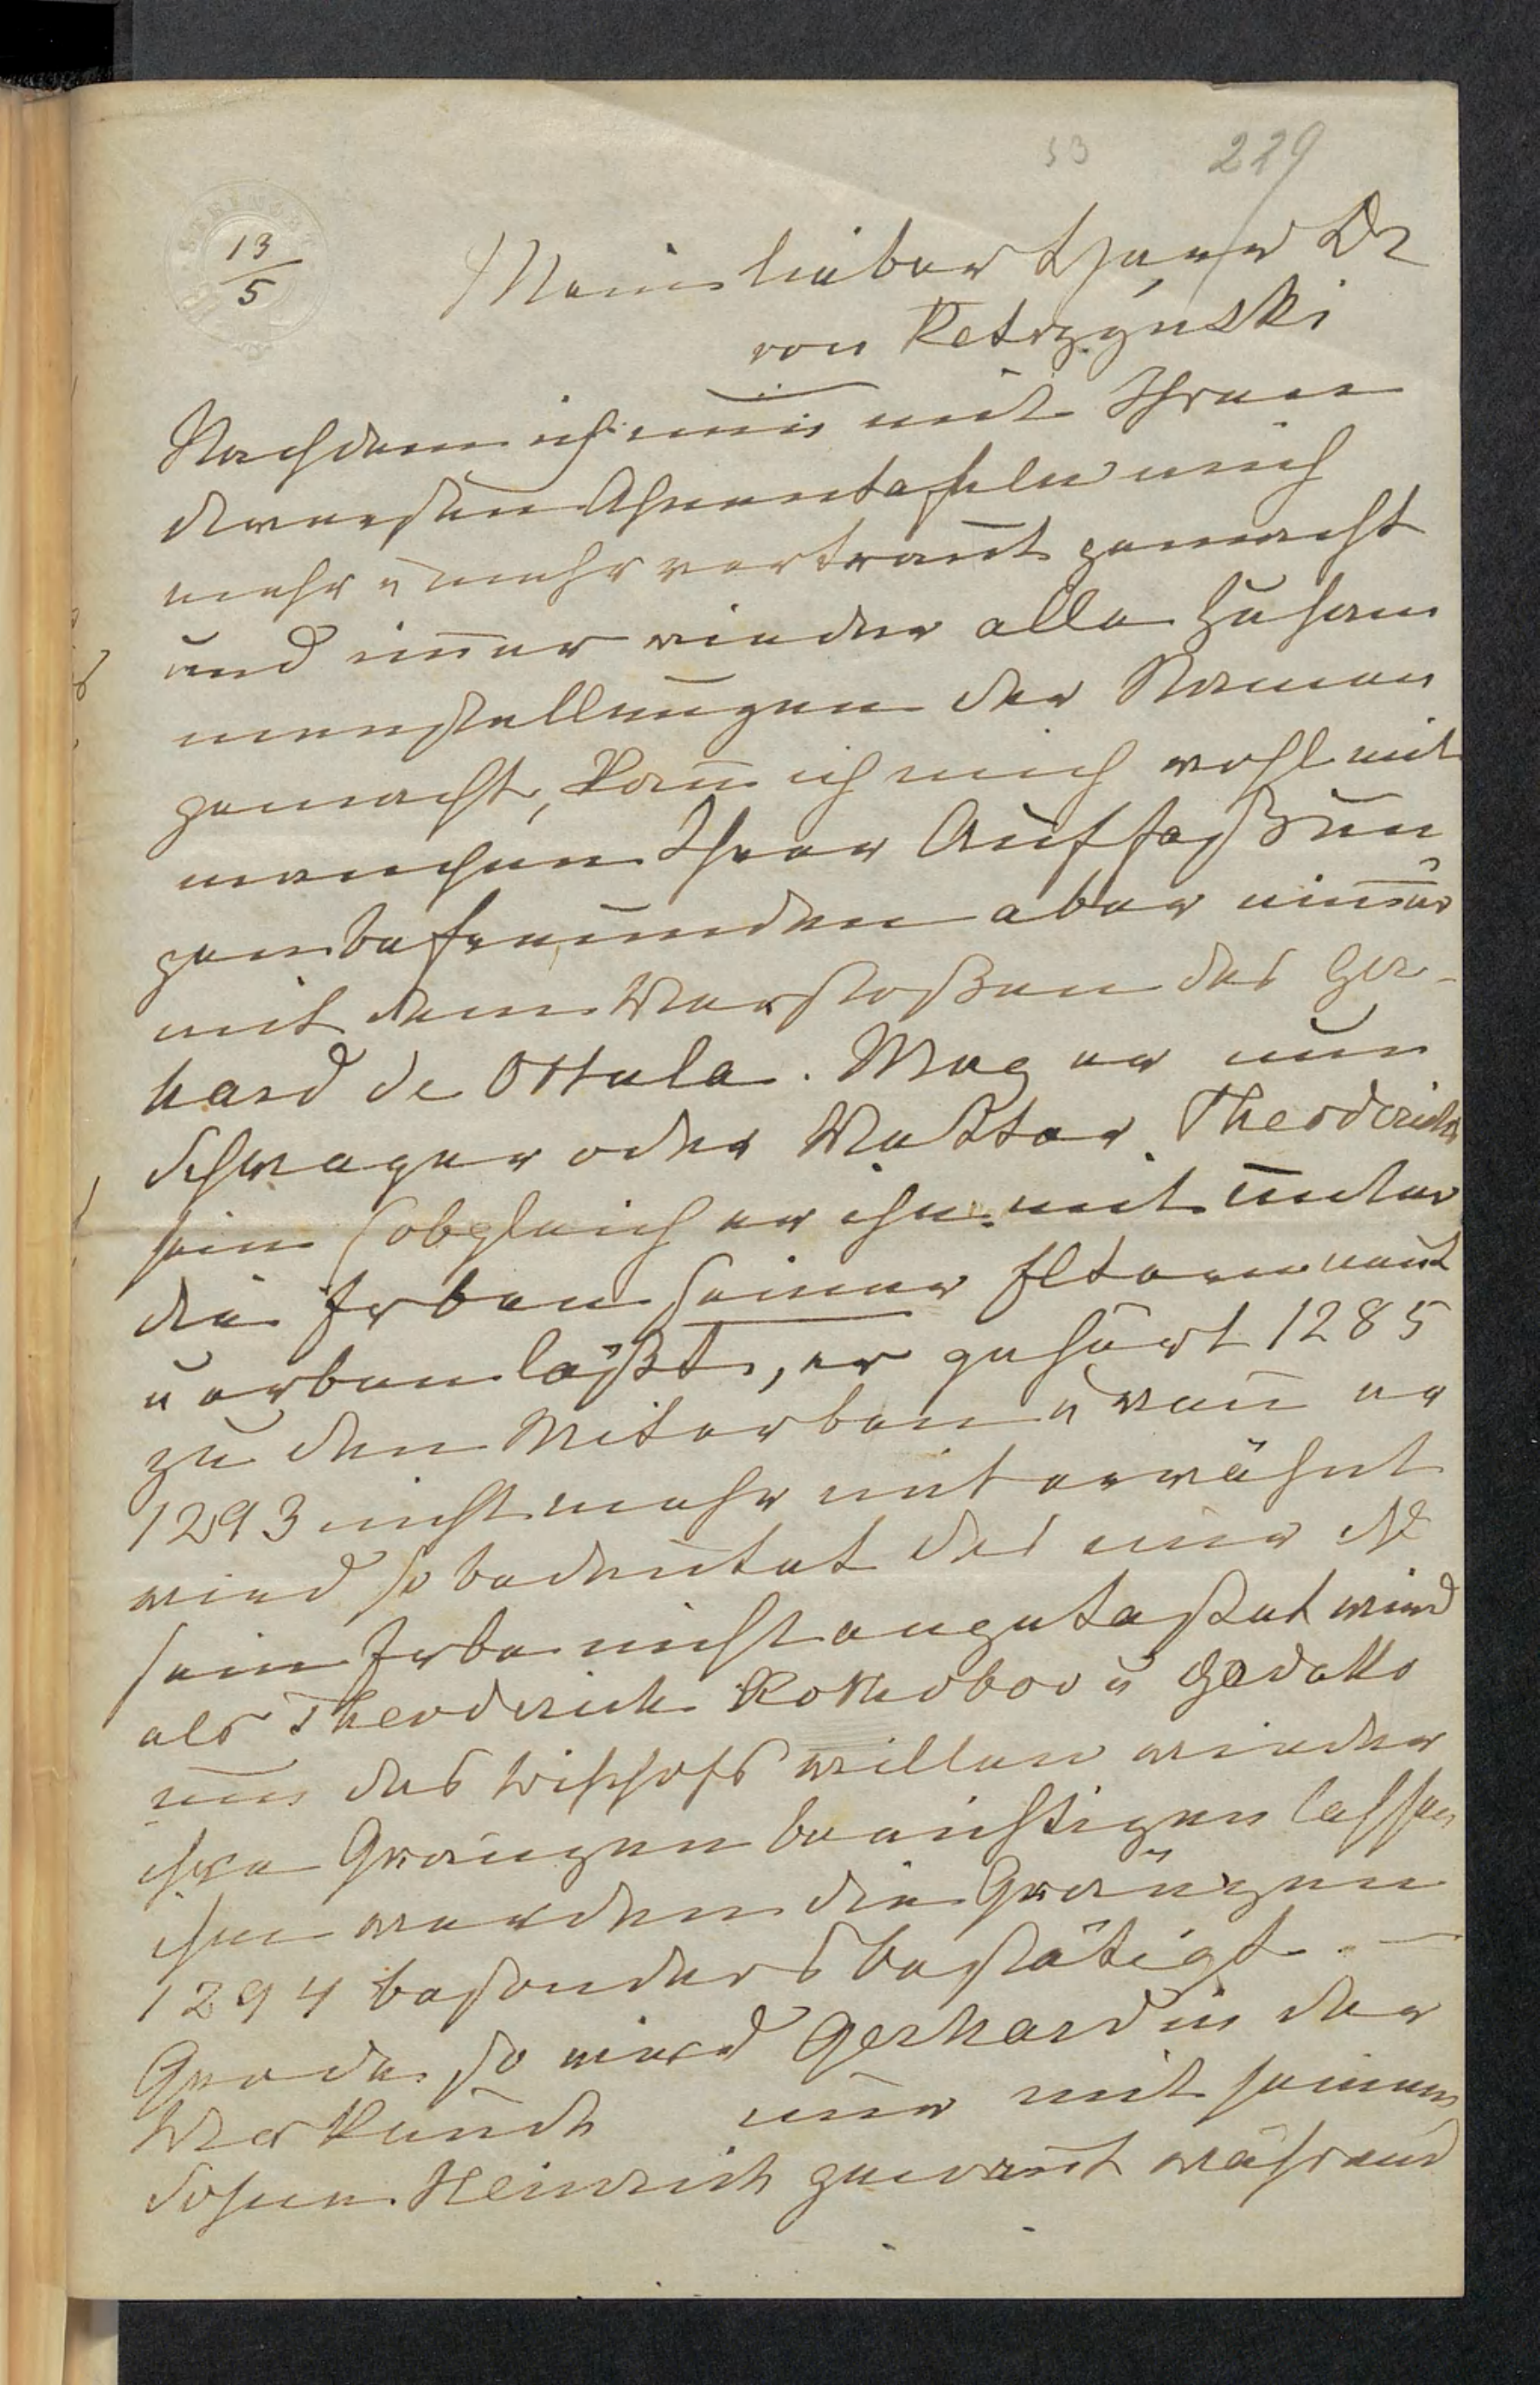 53 229
13/5
Mein lieber Herr Dr
von Ketrzyński
Nachdem ich nun mit Ihren
diversen Ahnentafeln mich
mehr u mehr vertraut gemacht
und im̄er wieder alle Zusam
menstellungen der Namen
gemacht, kan̄ ich mich wohl mit
manchen Ihrer Auffaßun
gen befreunden aber nim̄er
mit dem Verstoßen des Ger-
hard de Ottala. Mag er nun
Schwager oder Vetter Theoderichs
sein (obgleich er ihn mit unter
die Erben seiner Eltern nent
u erben läßt, er gehört 1285
zu den Miterben u wen̄ er
1293 nicht mehr mit erwähnt
wird so bedeutet das nur dß
sein Erbe nicht angetastet wird
als Theoderich Rothobor u Gedatto
um des Bischofs willen wieder
ihre Gränzen berichtigen lassen
ihm werden die Gränzen
1294 besonders bestätigt. —
Grade so wird Gerhard in der
Urkunde nur mit seinem
Sohne Heinrich genannt während